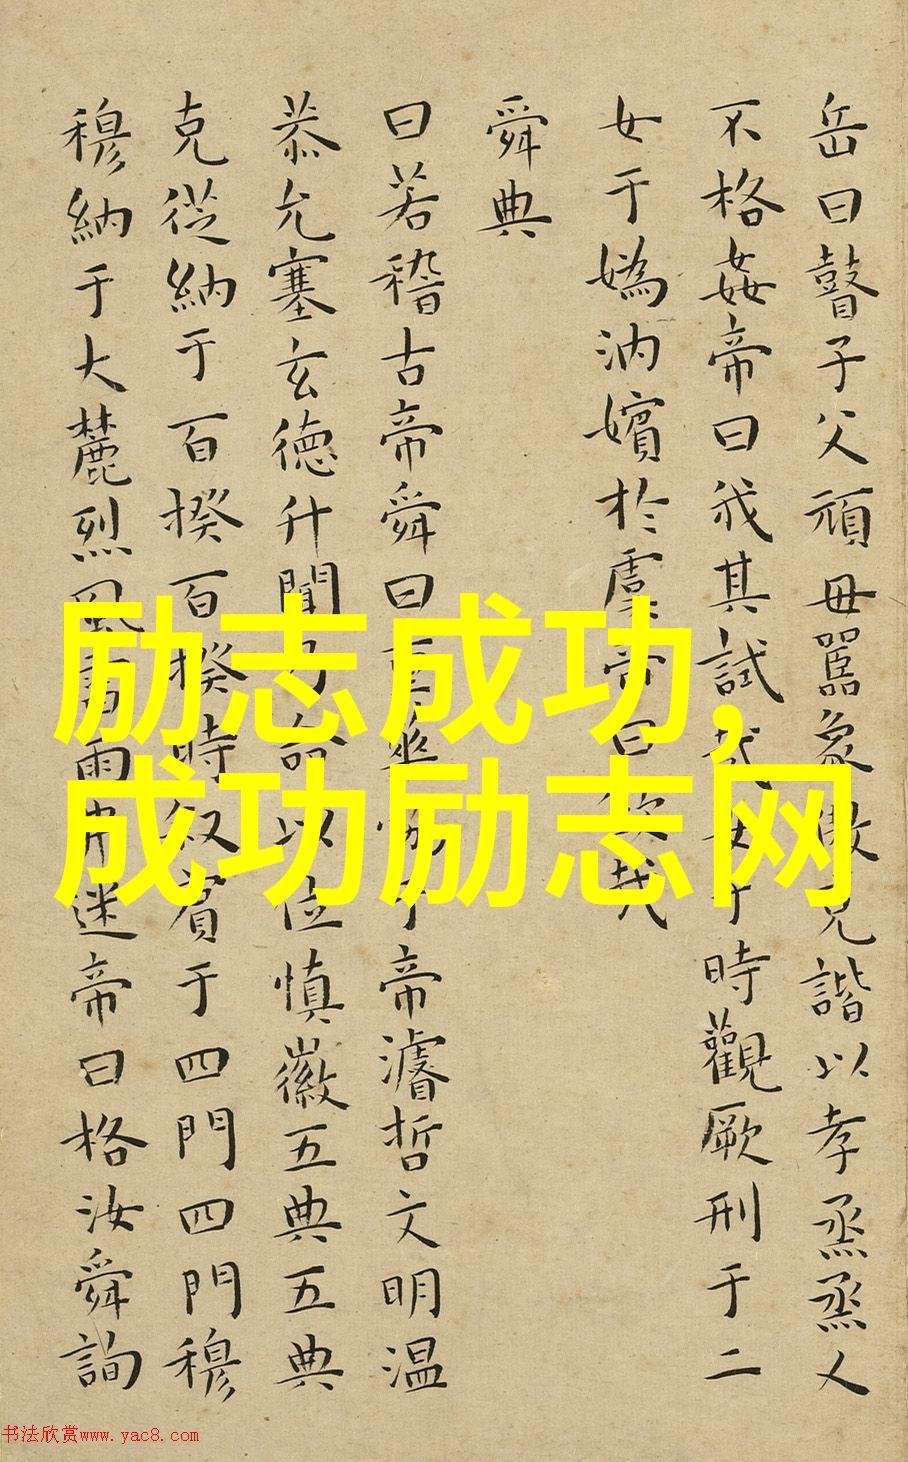 岳曰瞽子父頑毋嚚象傲克諧以孝烝烝乂
不格姦帝曰我其試哉女于時觀厥刑于二
女于媯汭嬪於虞帝曰欽哉
舜典
曰若稽古帝舜曰重華協于帝濬哲文明温
恭允塞玄德升聞乃命以位慎徽五典五典
克從納于百揆百揆時叙賓于四門四門穆
穆納于大麓烈風雷雨弗迷帝曰格汝舜詢
励志成功,
成功励志网
书法欣赏www.yac8.com